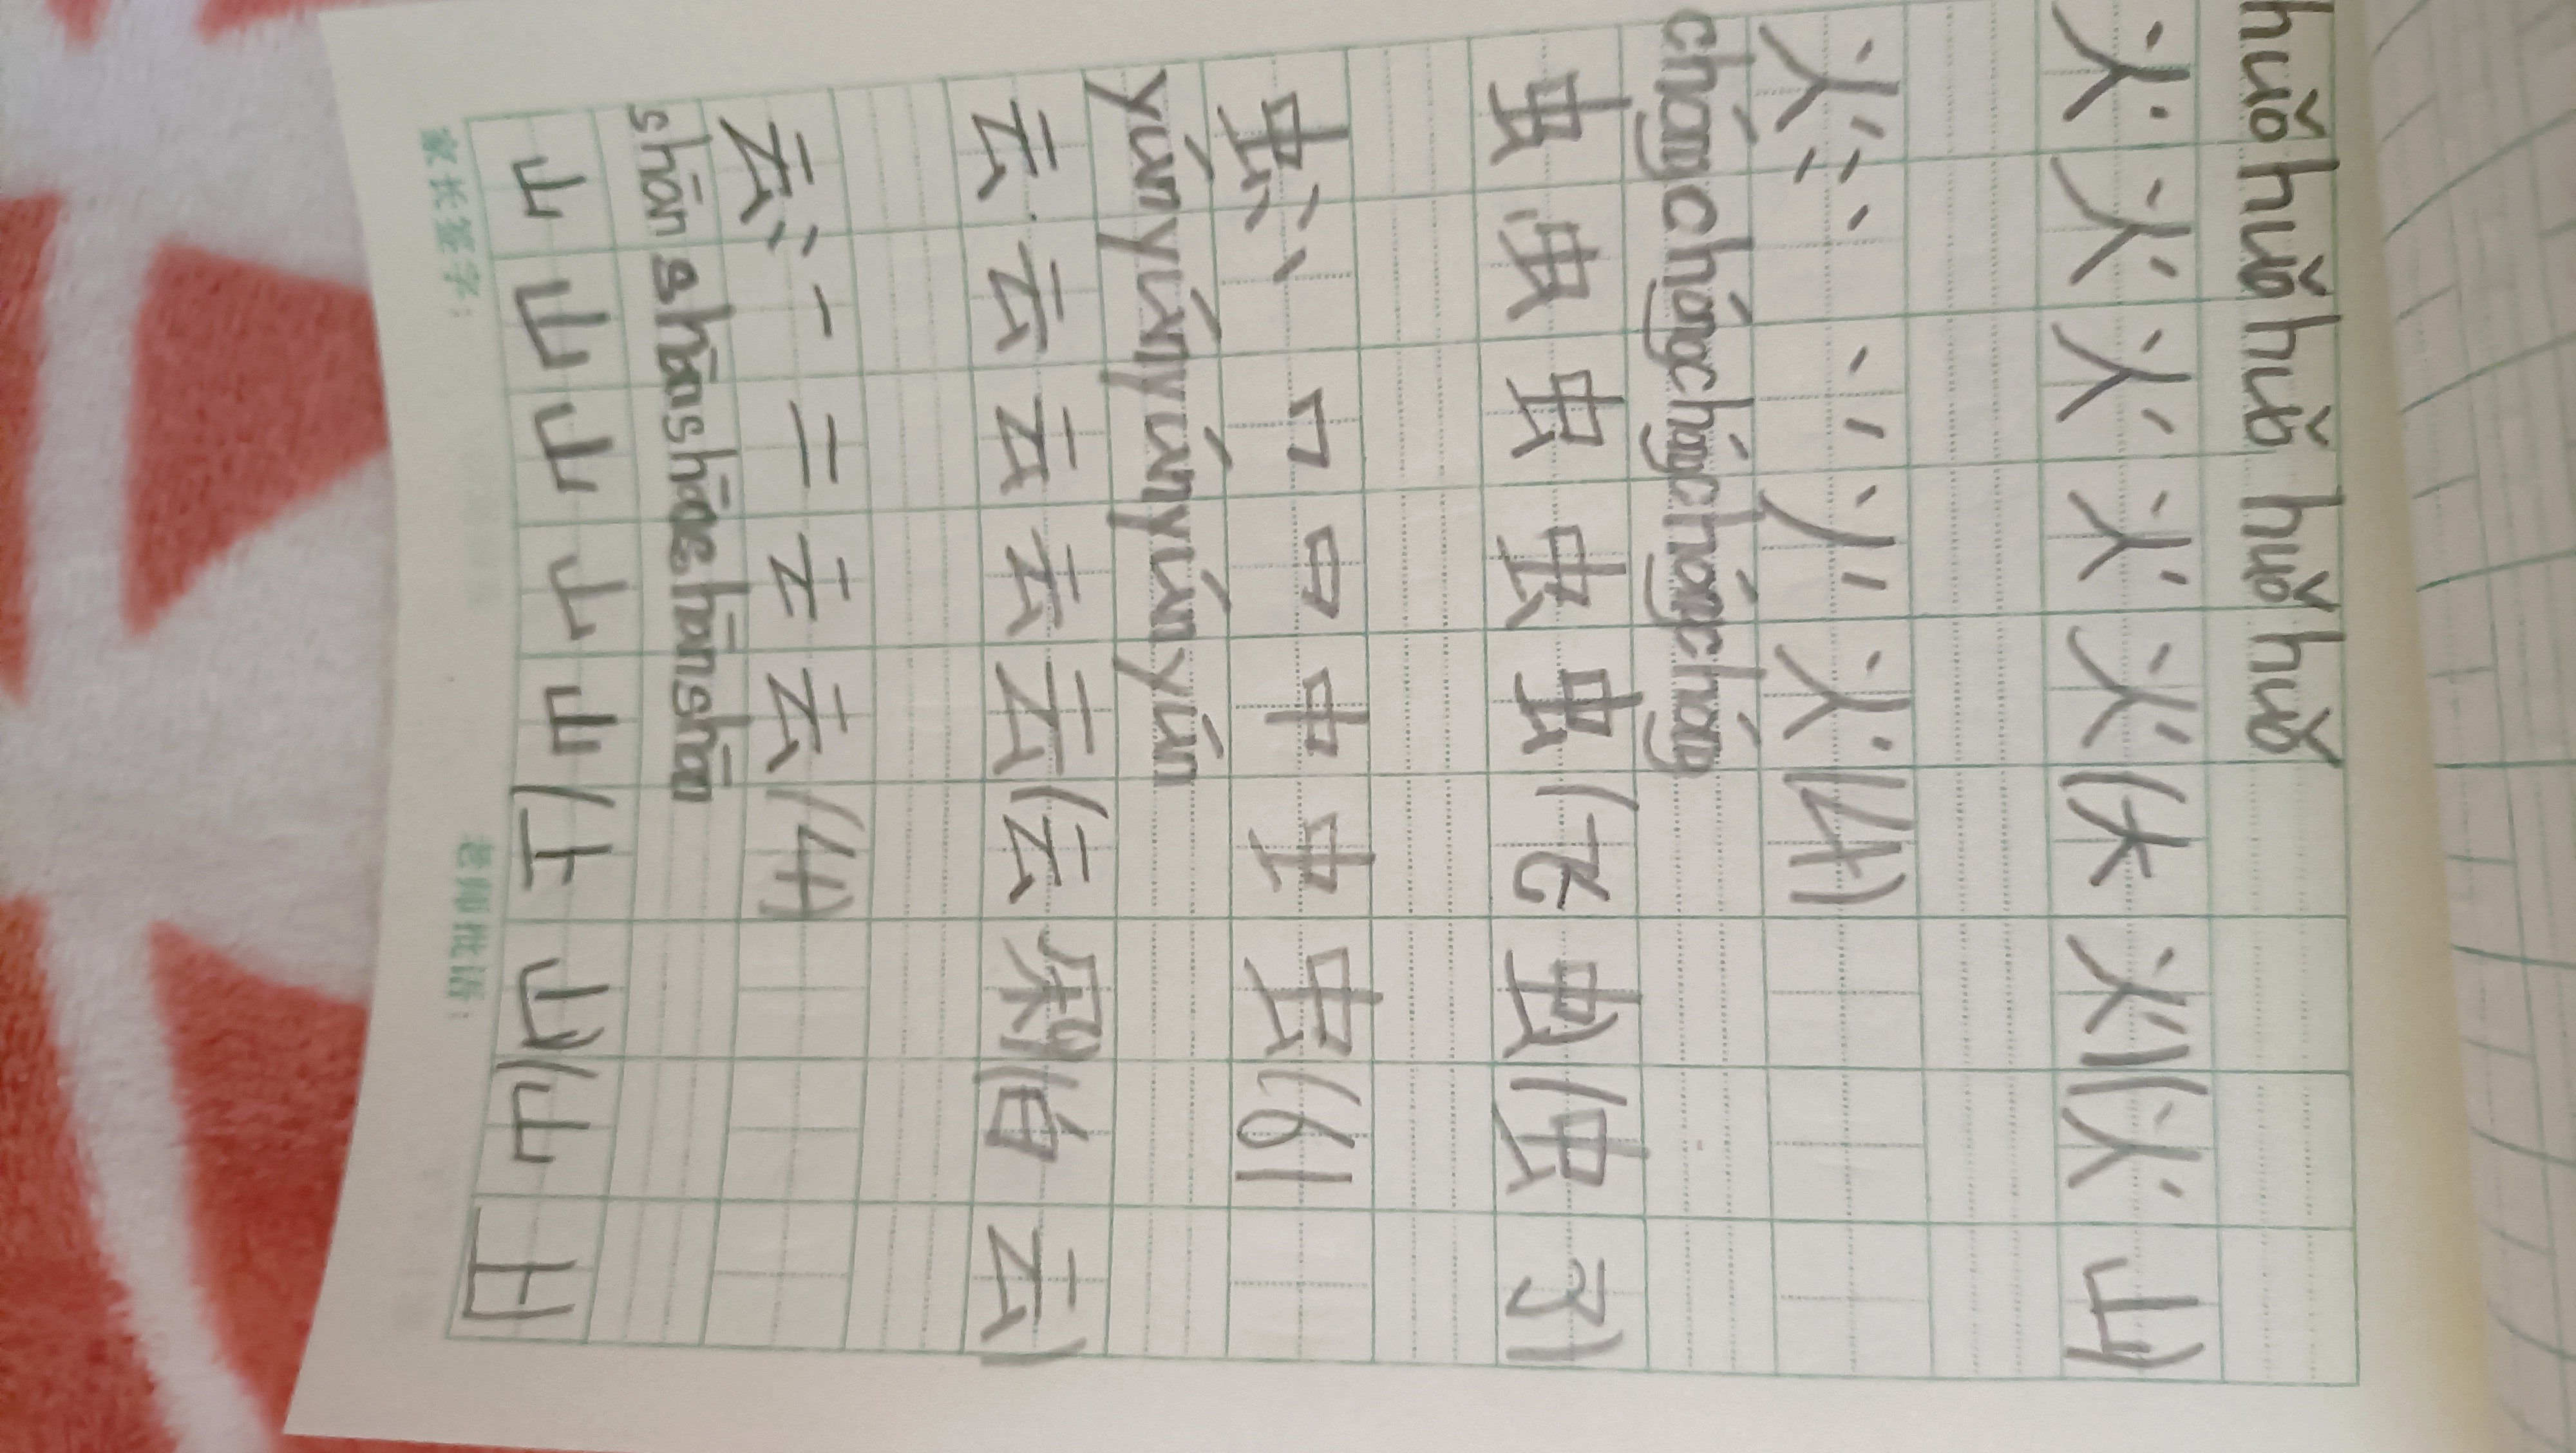 huǒhuǒhuǒ huǒ huǒ
火火火火火(大火)(火山)
火:丶 丷 火(4)
chóngchóngchóngchóngchóng
虫虫虫虫虫(飞虫)(虫子)
虫:丶 口 中 虫(6)
yúnyúnyúnyúnyún
云云云云云(云朵)(白云)
云:一 二 云(4)
shānshānshānshānshān
山山山山山(上山)(山
家长签字: 老师批语: